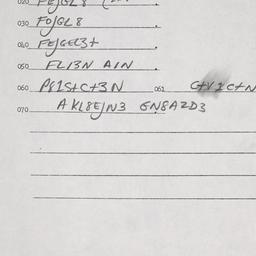 030 FOJGL8
040 FEJGEL3t
050 FL13N A1N
060 P81StCt3N 061
070 AKL8EJN3 GN8AZD3